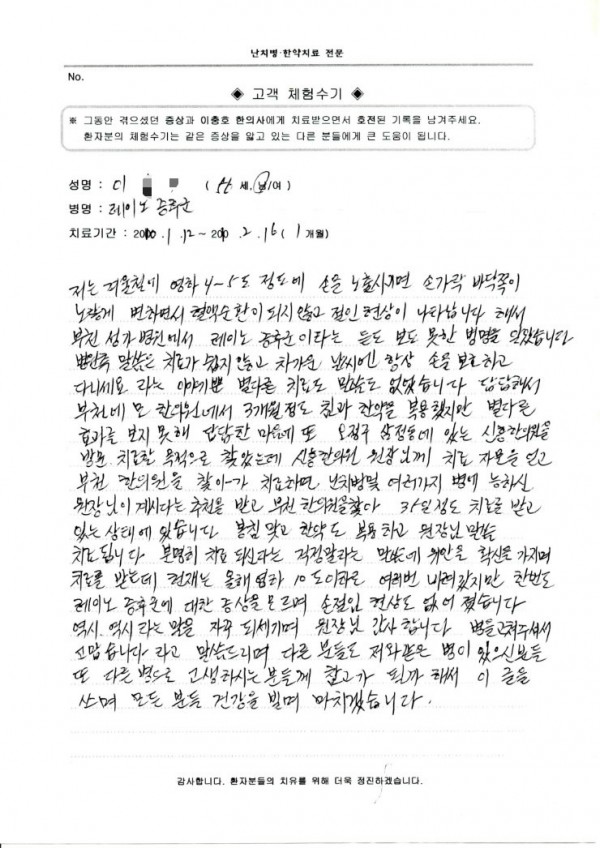 난치병·한약치료 전문
No.
◈ 고객 체험수기 ◈
※ 그동안 겪으셨던 증상과 이충호 한의사에게 치료받으면서 호전된 기록을 남겨주세요.
환자분의 체험수기는 같은 증상을 앓고 있는 다른 분들에게 큰 도움이 됩니다.
성명 : 이 ( 세. 남/여 )
병명 : 레이노 증후군
치료기간 : 2010. 1. 12 ~ 2010. 2. 16 ( 1 개월)
저는 겨울철에 영하 4~5도 정도에 손을 노출시키면 손가락 바닥쪽이
노랗게 변하면서 혈액순환이 되지 않고 절인 현상이 나타납니다 해서
부천 성가병원에서 레이노 증후군이라는 듣도 보도 못한 병명을 얻었습니다
말씀은 치료가 쉽지 않고 차가운 날씨엔 항상 손을 보호하고
다니세요 라는 이야기뿐 별다른 치료도 말씀도 없었습니다 답답해서
부천에 모 한의원에서 3개월 정도 침과 한약을 복용했지만 별다른
효과를 보지 못해 답답한 마음에 또 오정구 삼정동에 있는 신흥한의원을
방문 치료할 목적으로 찾았는데 신흥한의원 원장님께 치료 자문을 얻고
부천 한의원을 찾아가 치료하면 난치병및 여러가지 병에 능하신
원장님이 계시다는 추천을 받고 부천한의원을 찾아 35일정도 치료를 받고
있는 상태에 있습니다 봉침 맞고 한약도 복용하고 원장님 말씀
치료됩니다 분명히 치료 되신다는 걱정말라는 말씀에 위안을 확신을 가지며
치료를 받는데 현재는 올해 영하 10도이하로 여러번 내려갔지만 한번도
레이노 증후군에 대한 증상을 모르며 손절임 현상도 없어 졌습니다
역시. 역시 라는 말을 자꾸 되세기며 원장님 감사 합니다 병을 고쳐주셔서
고맙습니다 라고 말씀드리며 다른 분들도 저와같은 병이 있으신분들
또 다른 병으로 고생하시는 분들께 참고가 될까 해서 이 글을
쓰며 모든 분들 건강을 빌며 마치겠습니다.
감사합니다. 환자분들의 치유를 위해 더욱 정진하겠습니다.